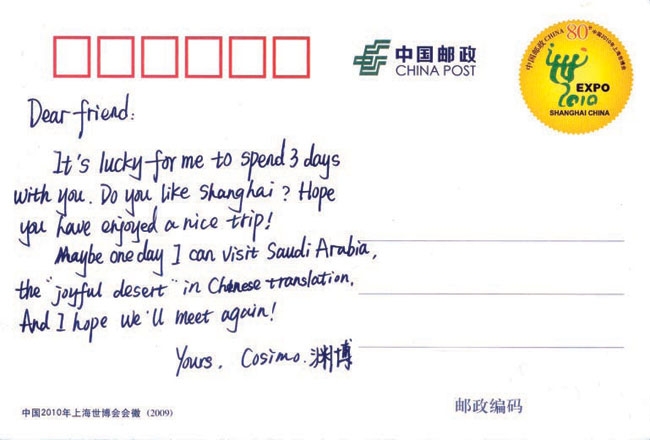 中国邮政
CHINA POST
中国邮政 CHINA 80分 中国2010年上海世博会
EXPO
2010
SHANGHAI CHINA
Dear friend:
It's lucky for me to spend 3 days
with you. Do you like Shanghai? Hope
you have enjoyed a nice trip!
Maybe one day I can visit Saudi Arabia,
the "joyful desert" in Chinese translation.
And I hope we'll meet again!
Yours, Cosimo. 渊博
中国2010年上海世博会会徽 (2009)
邮政编码